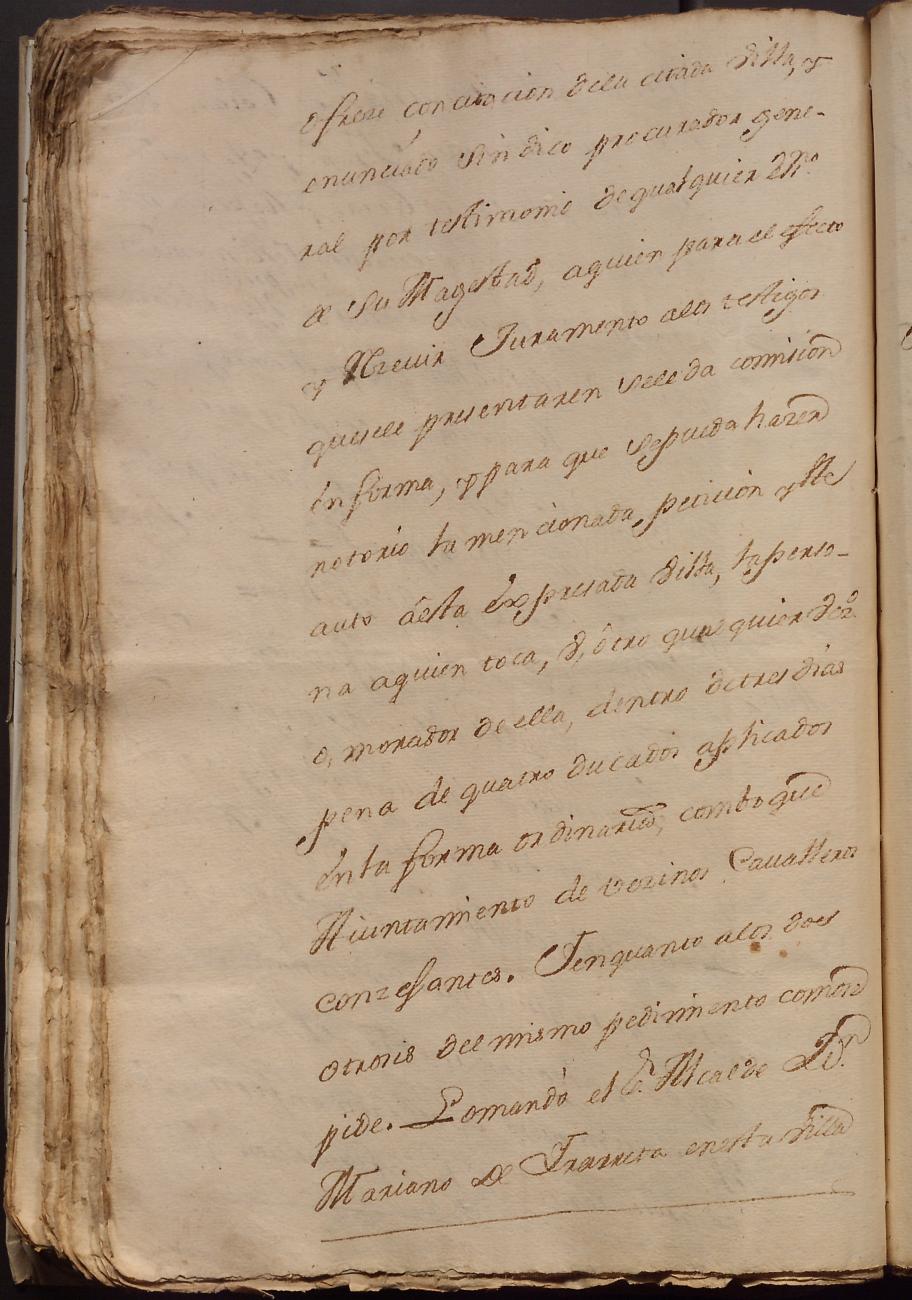 ofreze con citacion dela citada Villa, y
enunciado Sindico procurador gene-
ral por testimonio de qualquier
de Su Magestad, aquien para el efecto
y Rzeuir Juramento alos testigos
quesele presentaren sele da comision
en forma, y para que sepueda hazer
notorio la mencionada peticion y este
auto aesta expresada Villa, la perso-
na aquien toca, ô, ôtro qualquier
o, morador de ella, dentro detres dias
pena de quatro ducados aplicados
en la forma ordinaria, como que
Aiuntamiento de vezinos Cavalleros
conzesantes. Ienquanto alos dos
otrosis del mismo pedimento como
pide. Lo mandò el S.r Alcalde D.n
Mariano de enesta Villa